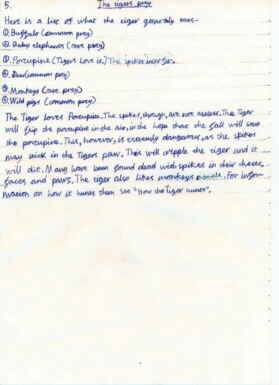 5. The tigers prey
Here is a list of what the tiger generaly eats-
① Buffalo (common prey)
② Baby elephants (rare prey)
③ Porcupine (Tigers Love it) The spikes never
④ (common prey)
⑤ Monkeys (rare prey)
⑥ Wild pigs (common prey)
The Tiger loves Porcupine. The spikes, though, are ever The Tiger
will flip the porcupine in the air, in the hope that the fall will
the porcupine. This, however, is extremly dangerous, as the spikes
may stick in the Tigers paw. This will cripple the tiger and it
will die. Many have been found dead with spikes in their cheeks,
faces and paws. The tiger also likes monkeys For infor-
mation on how it hunts them see "How the Tiger